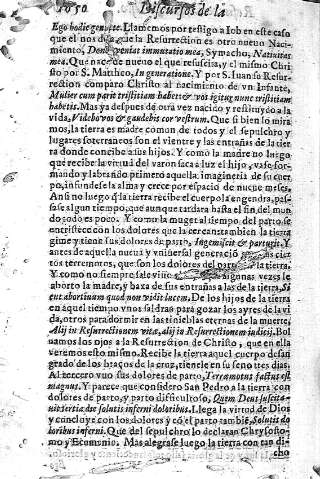 1050 Discursos de la
Ego hodie genui te. Llamemos por testigo a Iob en este caso
que el nos dirà que la Resurrection es otro nueuo Naci-
miento, Donec veniat immutatio mea, Symacho, Natiuitas
mea. Que nace de nueuo el que resuscita, y el mismo Chri
sto por S. Mattheo, In generatione. Y por S. Iuan su Resur-
rection comparò Christo al nacimiento de vn Infante,
Mulier cum parit tristitiam habet & vos igitur nunc tristitiam
habetis. Mas ya despues de otra vez nacido y restituydo a la
vida, Videbo vos & gaudebit cor vestrum. Que si bien lo mira
mos, la tierra es madre comun de todos y el sepulchro y
lugares soterraneos son el vientre y las entrañas de la tier
ra donde concibe a sus hijos. Y como la madre no luego
que recibe la virtud del varon saca a luz el hijo, vase for-
mando y labrando primero aquella imagineria de su cuer
po, infundese la alma y crece por espacio de nueue meses.
Ansi no luego que la tierra recibe el cuerpo la engendra, pas-
sase algun tiempo, que aunque tardara hasta el fin del mun
do todo es poco. Y como la muger al tiempo del parto se
entristece con los dolores que la cercan: tambien la tierra
gime y tiene sus dolores de parto, Ingemiscit & parturit. Y
antes de aquella nueua y vniuersal generacion
terremotos, que son los dolores del parto de la tierra.
Y como no siempre sale viuo algunas vezes le
aborto la madre, y baxa de sus entrañas a las de la tierra, Si
cut abortiuum quod non vidit lucem. De los hijos de la tierra
en aquel tiempo vnos saldran para gozar los ayres de la vi
da, otros para dormir en las tinieblas eternas de la muerte,
Alij in Resurrectionem vitæ, alij in Resurrectionem iudicij. Bol
uamos los ojos a la Resurrection de Christo, que en ella
veremos esto mismo. Recibe la tierra aquel cuerpo desan
grado de los braços de la cruz, tienele en su seno tres dias.
Al tercero vuo sus dolores de parto, Terræmotus factus est
magnus. Y parece que considerò San Pedro a la tierra con
dolores de parto, y parto difficultoso, Quem Deus suscita-
uit tertia die solutis inferni doloribus. Llega la virtud de Dios
y concluye con los dolores y cò el parto tambiè, Solutis do
loribus inferni. Que del sepulchro lo declaran Chrysosto-
mo y Ecumenio. Mas alegrase luego la tierra con tan di
cho